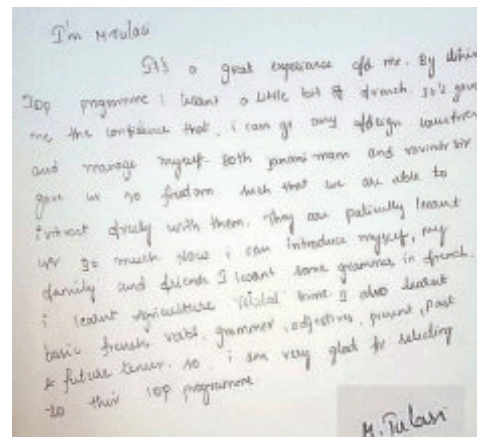 I'm M Tulasi
It's a great experiance of me. By
IDP programme i learnt a little bit of french It's gave
me the confidence that, i can go any foreign countries
and manage myself. Both janani mam and ravindr sir
gave us so fredom such that we are able to
intract freely with them. They are patiently learnt
us so much Now i can introduce myself, my
family and friends I learnt some grammar in french.
i learnt agriculture terms I also learnt
basic french verbs, grammer, adjectives, present, past
& future tenses. so i am very glad for selecting
to this IDP programme.
M. Tulasi